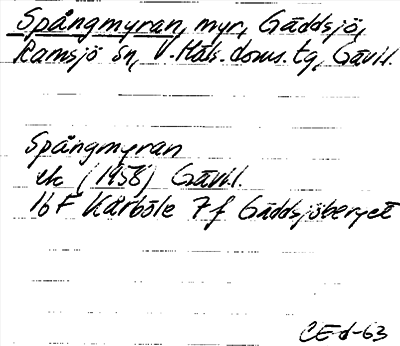 Spångmyran, myr, Gäddsjö,
Ramsjö sn, V. Häls. doms. tg, Gävl.
Spångmyran
ek (1958) Gävl.
16 F Kårböle 7 f Gäddsjöberget
CE-d-63